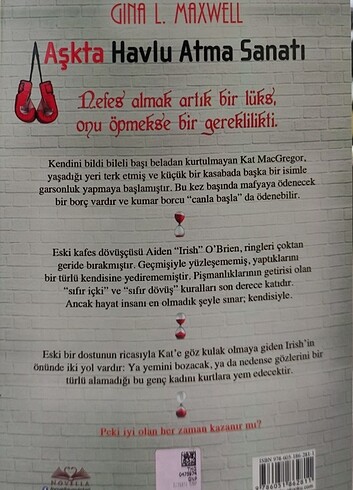 GINA L. MAXWELL
Aşkta Havlu Atma Sanatı
Nefes almak artık bir lüks,
onu öpmekse bir gereklilikti.
Kendini bildi bileli başı beladan kurtulmayan Kat MacGregor,
yaşadığı yeri terk etmiş ve küçük bir kasabada başka bir isimle
garsonluk yapmaya başlamıştır. Bu kez başında mafyaya ödenecek
bir borç vardır ve kumar borcu “canla başla” da ödenebilir.
Eski kafes dövüşçüsü Aiden “Irish” O’Brien, ringleri çoktan
geride bırakmıştır. Geçmişiyle yüzleşememiş, yaptıklarını
bir türlü kendisine yedirememiştir. Pişmanlıklarının getirisi olan
“sıfır içki” ve “sıfır dövüş” kuralları son derece katıdır.
Ancak hayat insanı en olmadık şeyle sınar; kendisiyle.
Eski bir dostunun ricasıyla Kat’e göz kulak olmaya giden Irish’in
önünde iki yol vardır: Ya yemini bozacak, ya da nedense gözlerini bir
türlü alamadığı bu genç kadını kurtlara yem edecektir.
Peki iyi olan her zaman kazanır mı?
NOVELLA